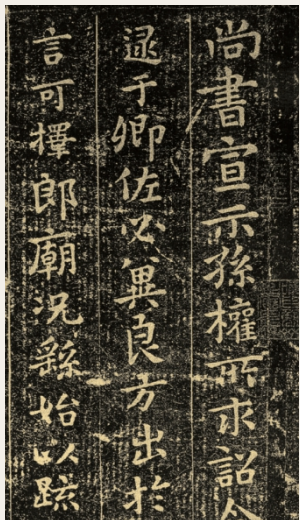 尚書宣示孫權所求詔令
逮于卿佐必冀良方出於
言可擇郎廟況繇始以疏